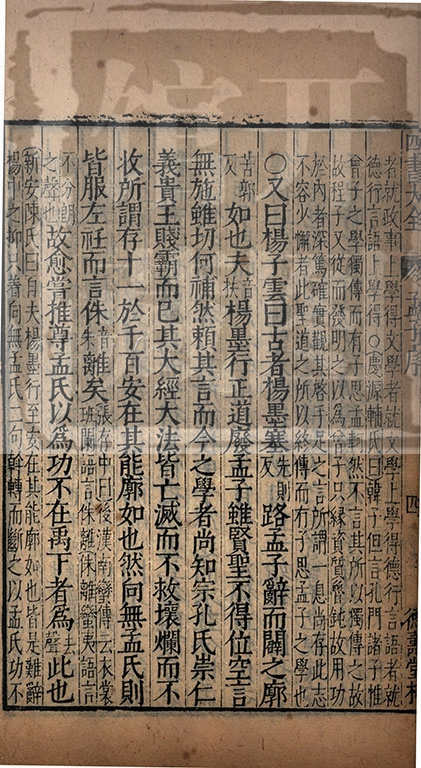 四書大全 卷 孟子序 四 德壽堂梓
者就政事上學得文學者就文學上學得德行言語者就
德行言語上學得○慶源輔氏曰韓子但言孔門諸子惟
曾子之學獨傳而有子思孟軻然不言其所以獨傳之故
故程子又從而發明之以爲曾子只緣資質魯鈍故用功
於內者深篤確實觀其啓手足之言所謂一息尚存此志
不容少懈者此聖道之所以終傳而有子思孟子之學也
○又曰楊子雲曰古者楊墨塞先則反路孟子辭而闢之廓
苦郭反如也夫音扶楊墨行正道廢孟子雖賢聖不得位空言
無施雖切何補然賴其言而今之學者尚知宗孔氏崇仁
義貴王賤霸而已其大經大法皆亡滅而不救壞爛而不
收所謂存十一於千百安在其能廓如也然向無孟氏則
皆服左衽而言侏音朱離矣張存中曰後漢南蠻傳云衣裳班闌語言侏離侏離蠻夷語言
不分明之聲也故愈嘗推尊孟氏以爲功不在禹下者爲去聲此也
新安陳氏曰自夫楊墨行至安在其能廓如也皆是難辭
楊中之抑只着向無孟氏一句斡轉而斷之以孟氏功不